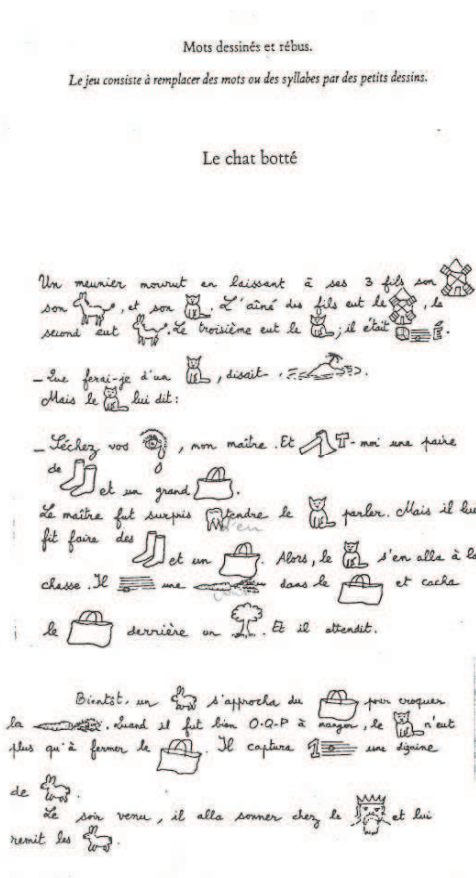 Mots dessinés et rébus.
Le jeu consiste à remplacer des mots ou des syllabes par des petits dessins.
Le chat botté
Un meunier mourut en laissant à ses 3 fils son
son , et son . L'aîné des fils eut le , le
second eut . Le troisième eut le ; il était
– Que ferai-je d'un , disait- .
Mais le lui dit :
– Séchez vos , mon maître. Et -moi une paire
de et un grand .
Le maître fut surpris tendre le parler. Mais il lui
d'en
fit faire des et un . Alors, le s'en alla à la
chasse. Il une dans le et cacha
le derrière un . Et il attendit.
Bientôt, un s'approcha du pour croquer
la . Quand il fut bien O-Q-P à manger, le n'eut
plus qu'à fermer le . Il captura 1 une dizaine
de .
Le soir venu, il alla sonner chez le et lui
remit les .